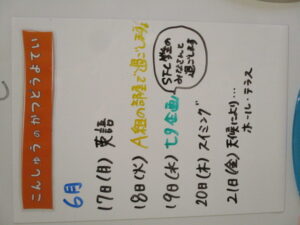 こんしゅうのかつどうよてい
6月
17日(月) 英語
18日(火) A組の部屋で過ごします。
19日(水) 七夕企画
SFC学生の
みなさんと
過ごします
20日(木) スイミング
21日(金) 天候により…
ホール・テラス